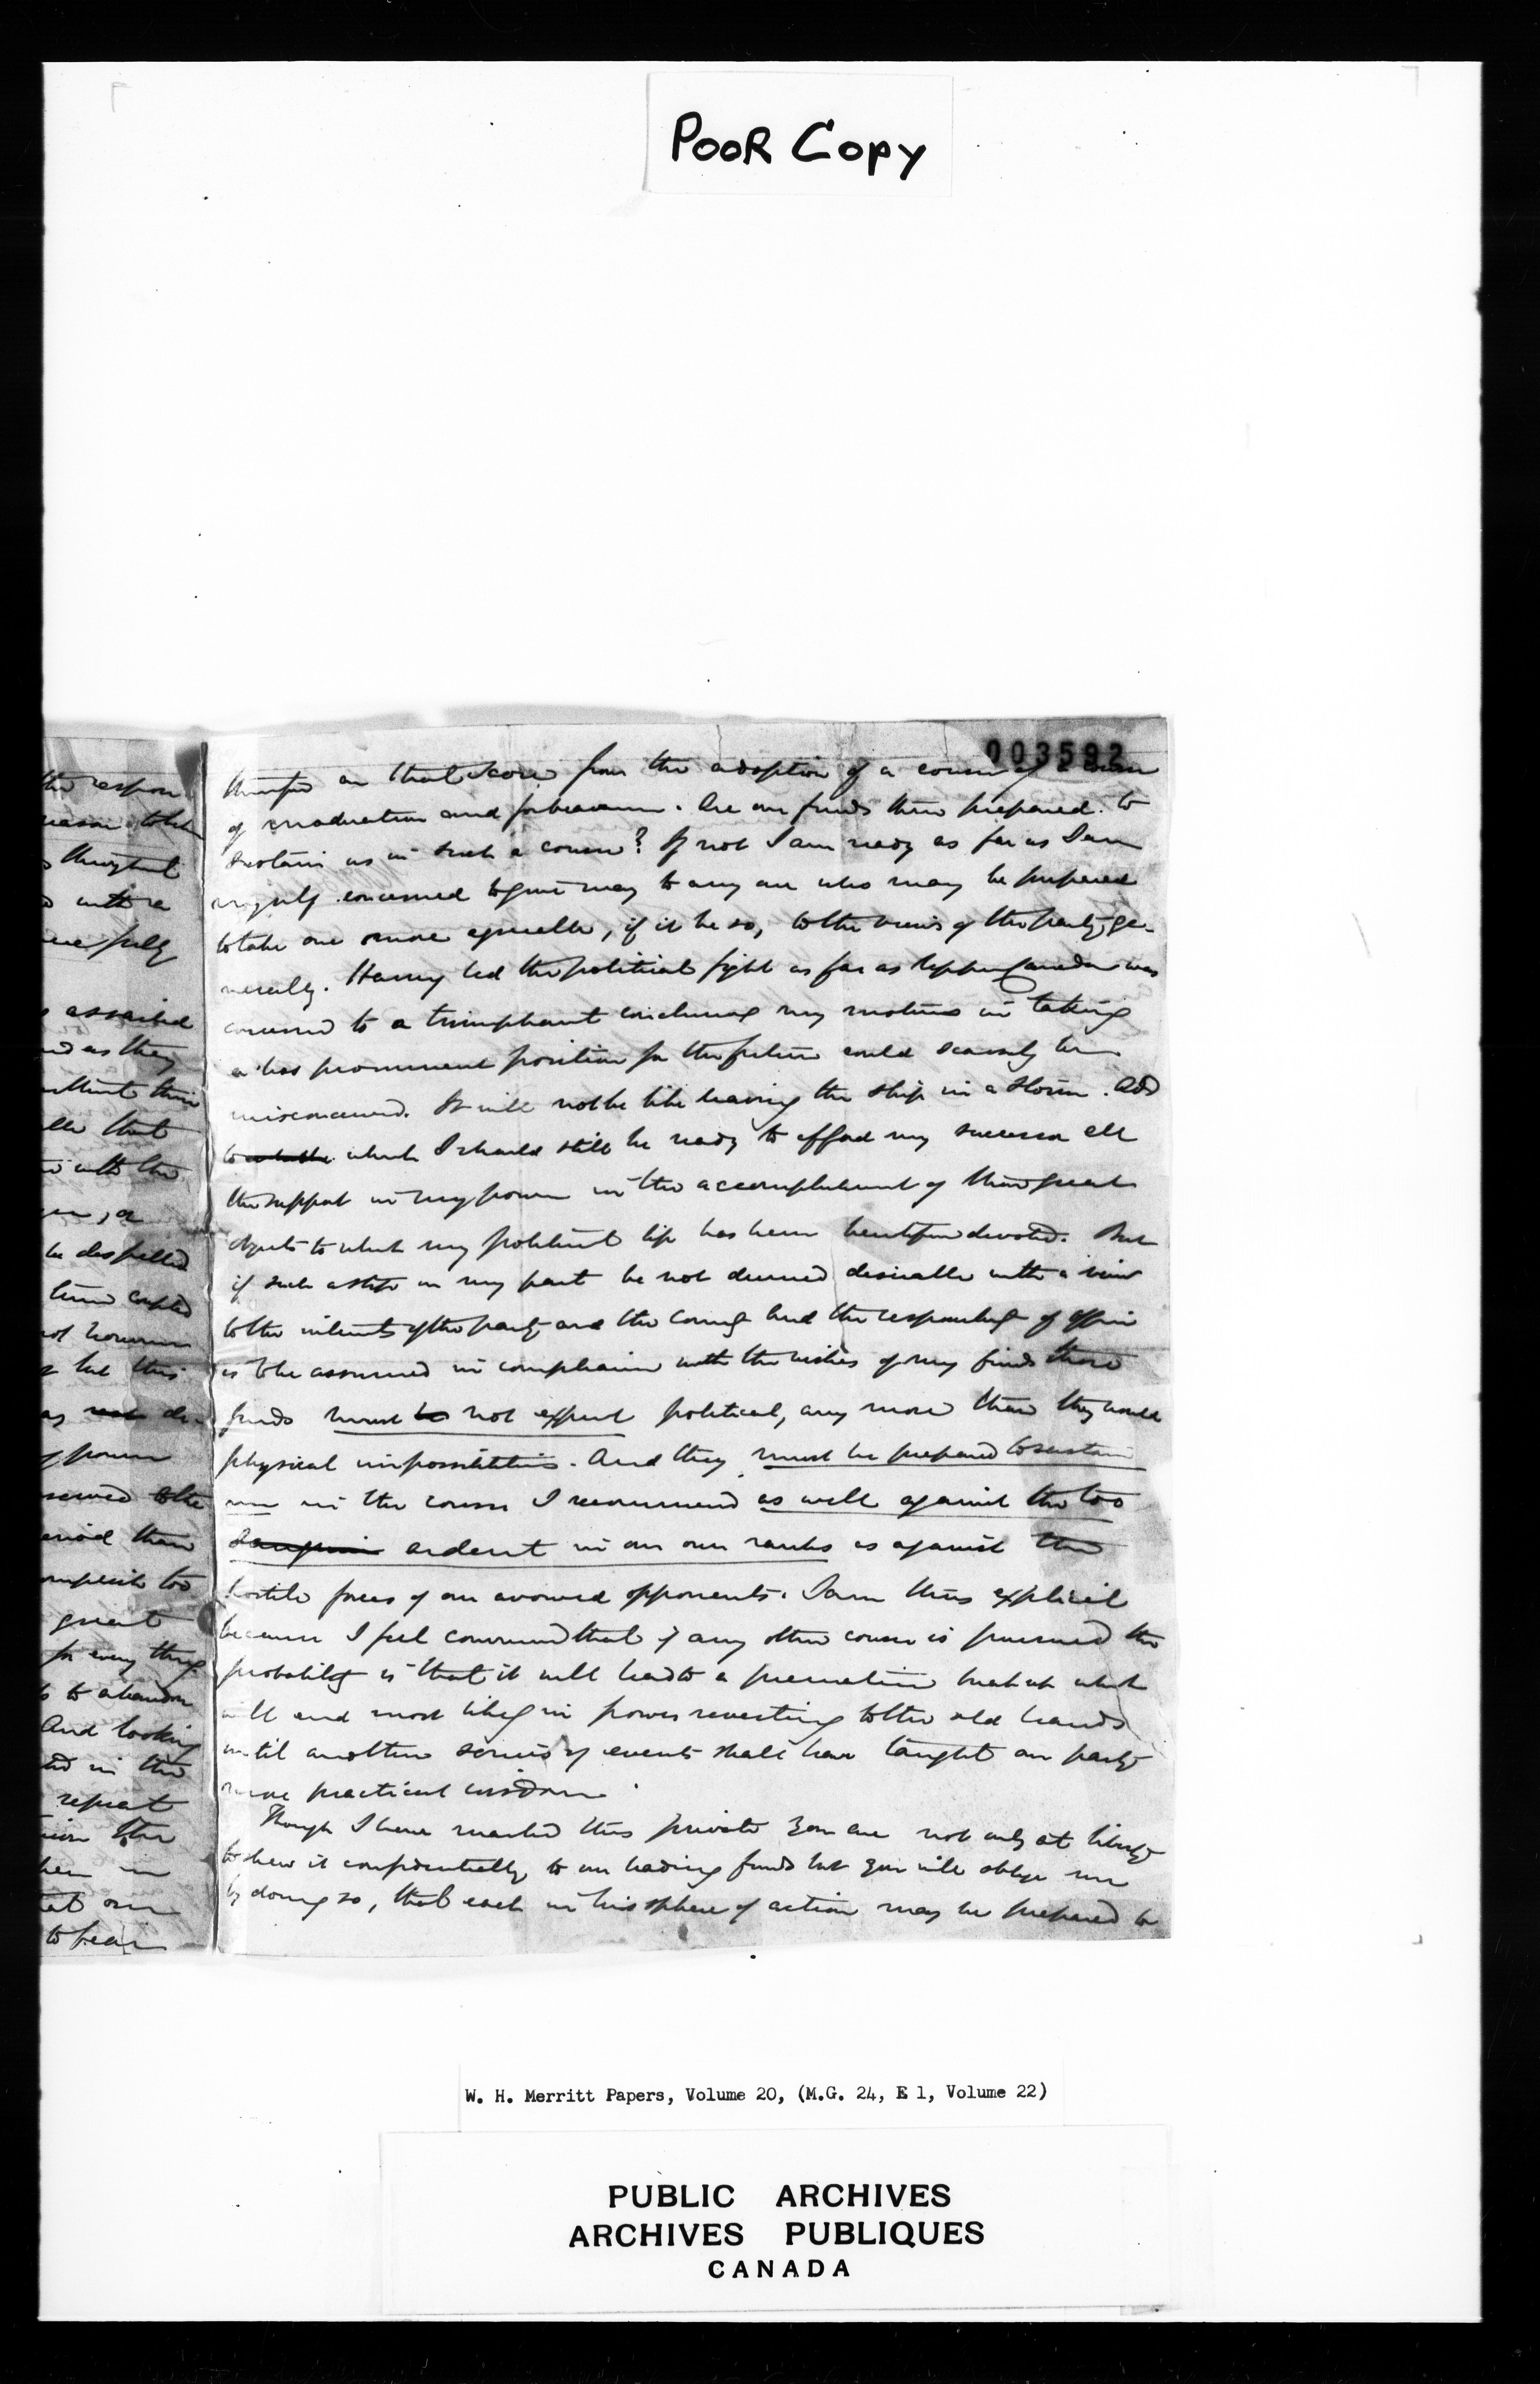 Poor Copy
003592
therefore on that score from the adoption of a course of a course
of moderation and forbearance. Are our friends then prepared to
sustain us in such a course? If not I am ready as far as I am
myself concerned to give way to any one who may be prepared
to take one more agreeable, if it be so, to the views of the party ge-
nerally. Having led the political fight as far as Upper Canada was
concerned to a triumphant conclusion my motives in taking
a less prominent position for the future could scarcely be
misconceived. It will not be like leaving the ship in a storm. Add
to which I should still be ready to afford my successor all
the support in my power in the accomplishment of those great
objects to which my political life has been heretofore devoted. But
if such a step on my part be not deemed desirable with a view
to the interests of the party and the country and the responsibility of office
is to be assumed in compliance with the wishes of my friends those
friends must not expect political, any more than they would
physical impossibilities. And they must be prepared to sustain
me in the course I recommend as well against the too
sanguine ardent in our own ranks as against the
hostile forces of our avowed opponents. I am thus explicit
because I feel convinced that if any other course is pursued the
probability is that it will lead to a premature break up which
will end most likely in power reverting to the old hands
until another series of events shall have taught our party
more practical wisdom.
Though I have marked this private you are not only at liberty
to shew it confidentially to our leading friends but you will oblige me
by doing so, that each in his sphere of action may be prepared to
the respon
reason to be
throughout
with a
fully
assailed
as they
without their
that
with the
, or
be dispelled
time
not however
but this
any
power
the
period than
too
great
for every thing
to abandon
And looking
in the
repeat
the
in
that our
to bear
W. H. Merritt Papers, Volume 20, (M.G. 24, E 1, Volume 22)
PUBLIC ARCHIVES
ARCHIVES PUBLIQUES
CANADA